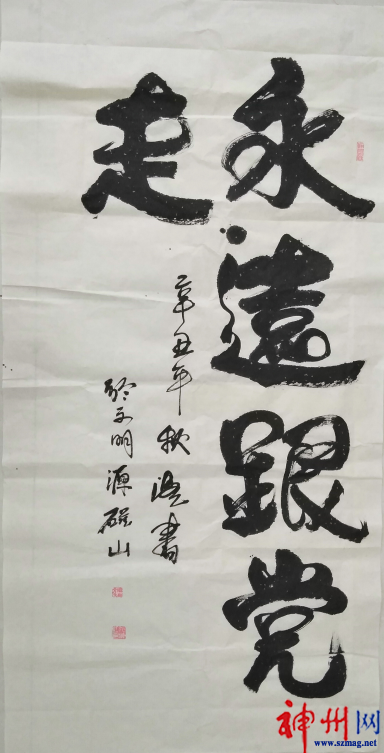 永遠跟党
走
辛丑年秋
书
於文明源磁山
神州网
www.szmag.net